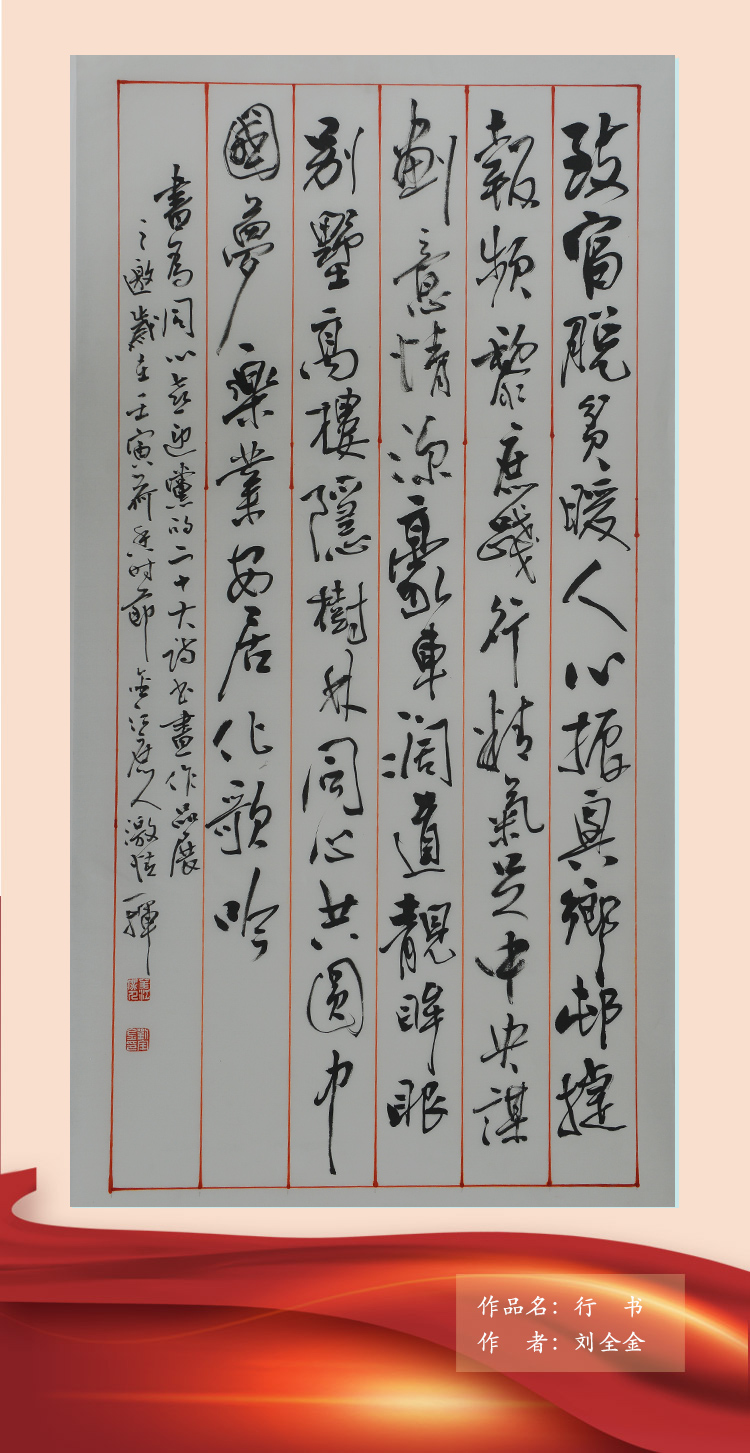 致富脱貧暖人心振興鄉邨捷
報頻黎庶踐行精氣足中央謀
劃意情深豪車闊道靚眸眼
别墅高樓隱樹林同心共圓中
國夢樂業安居化歌吟
書為同心喜迎黨的二十大詩书畫作品展
之邀歲在壬寅荷香时節金江人激情一揮
作品名：行 书
作 者：刘全金